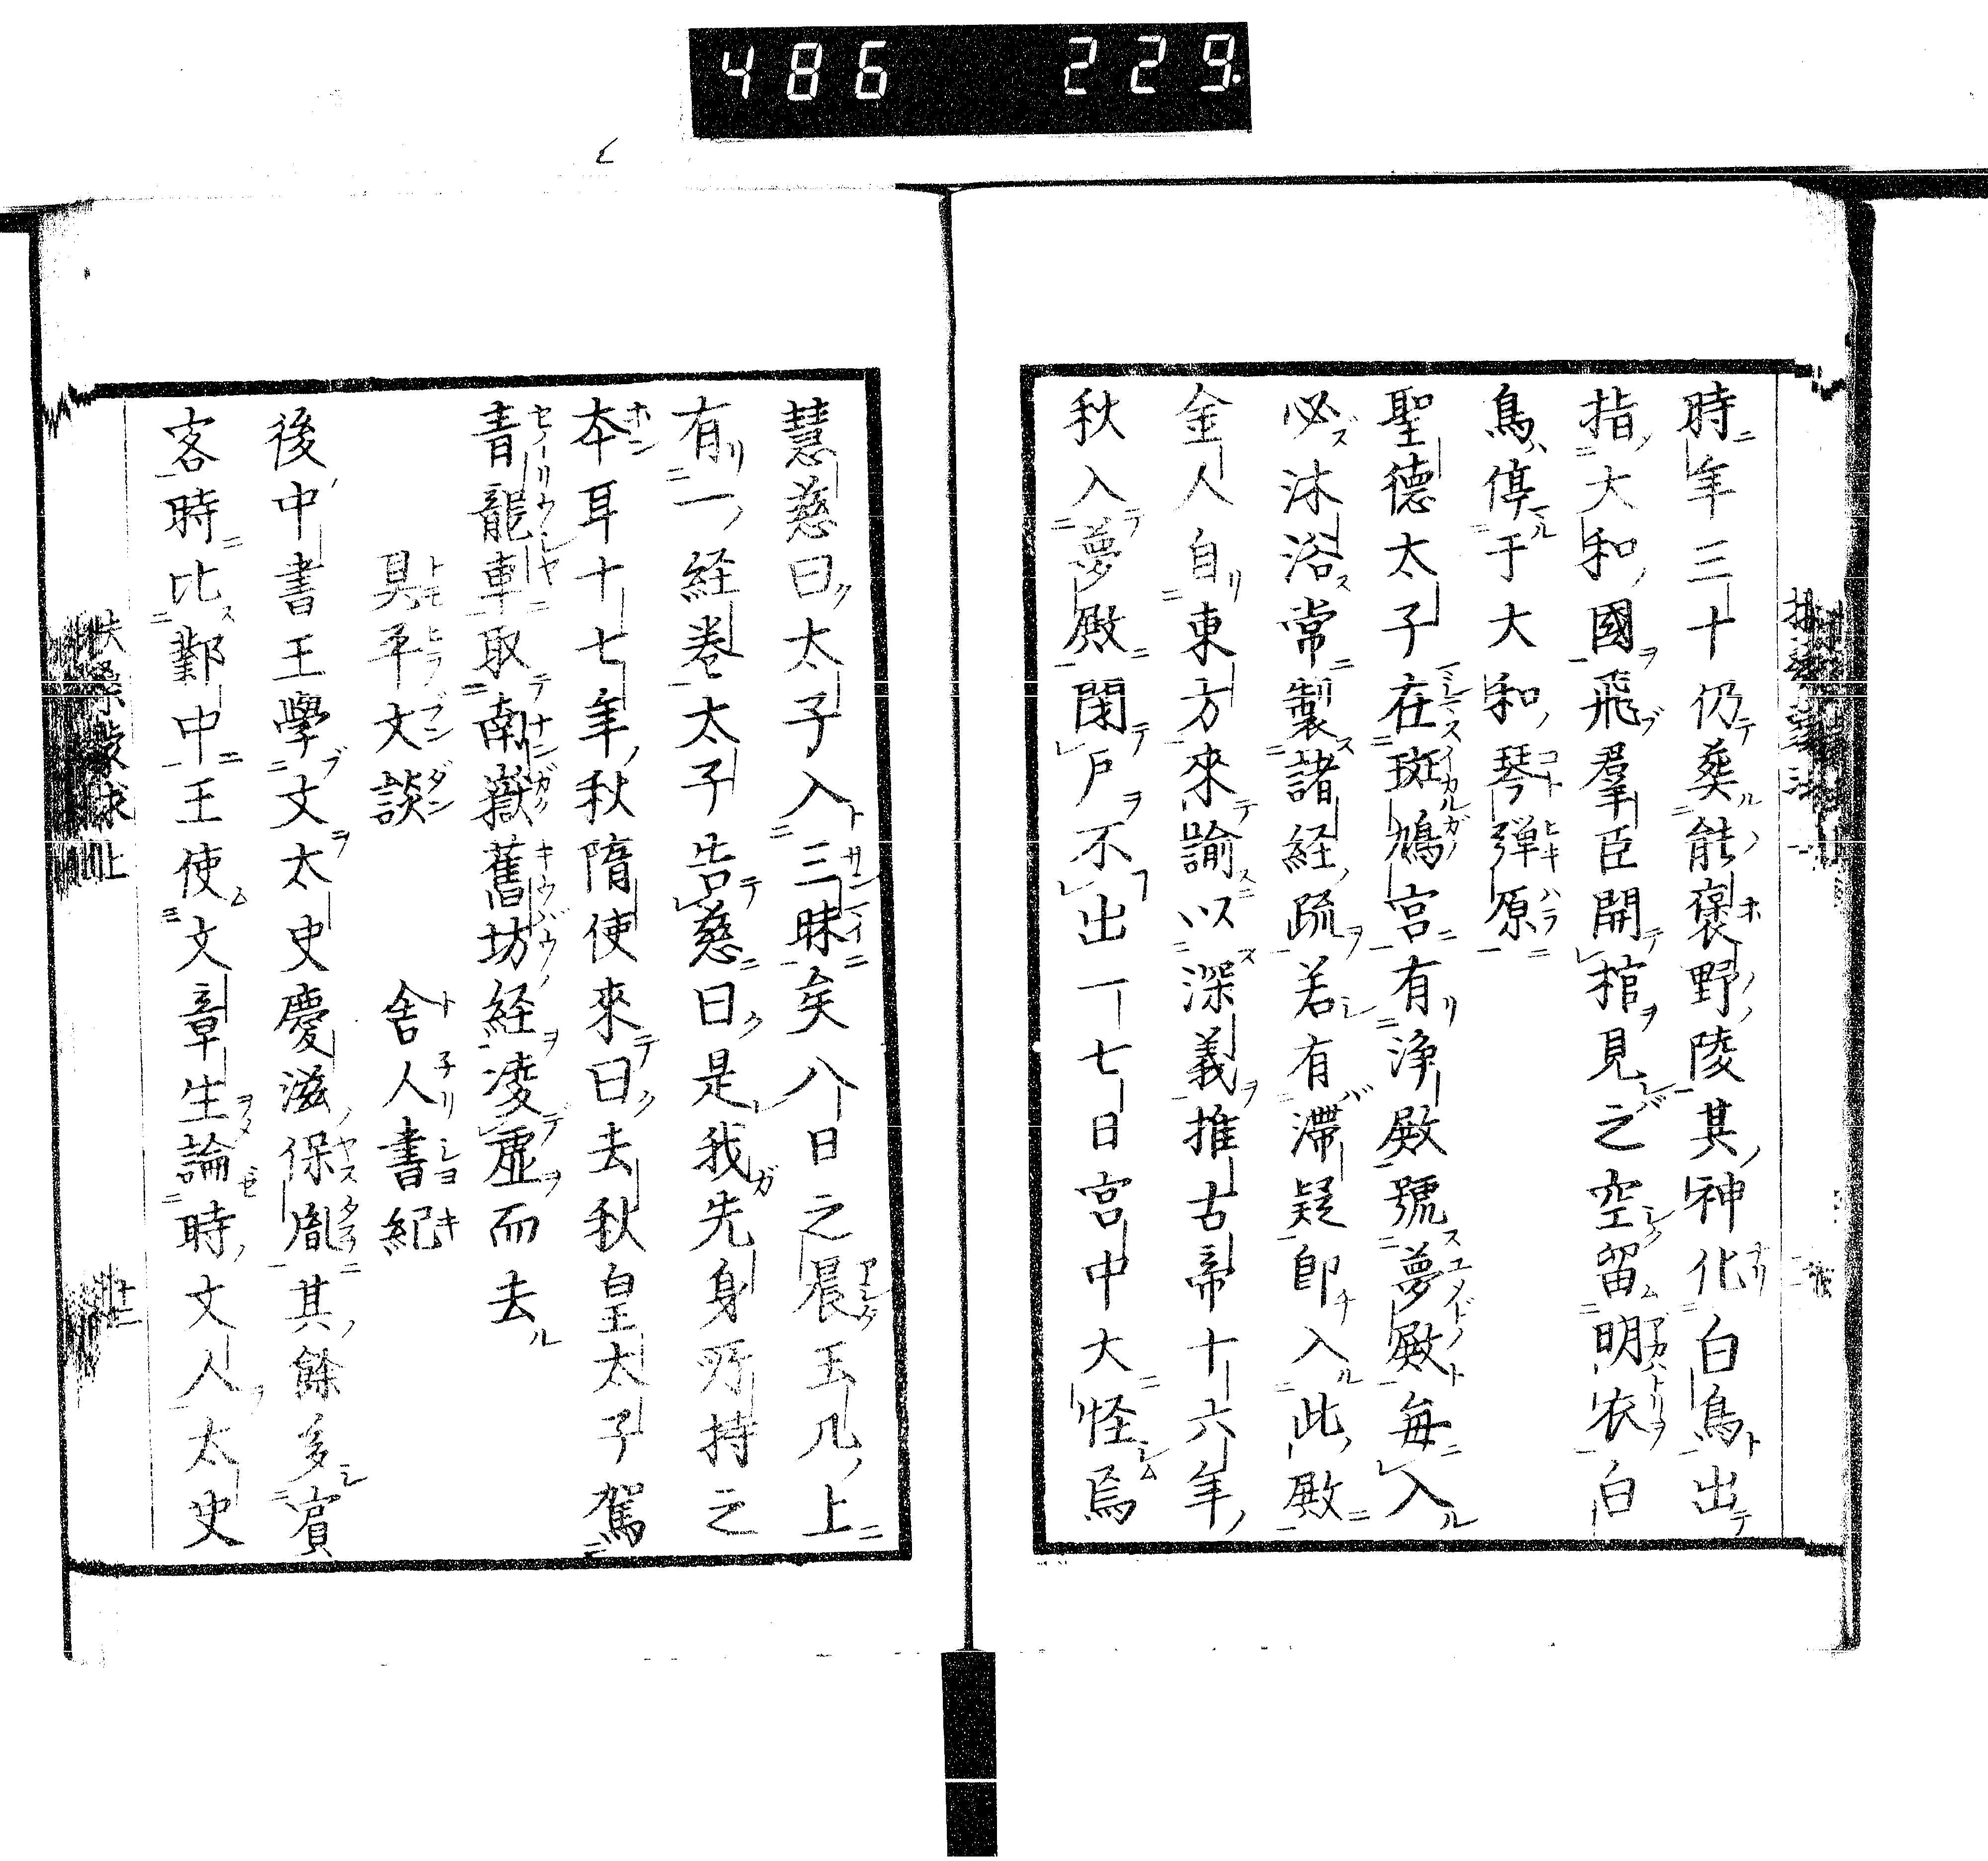 486 229.
時年三十仍葬能褒野陵其神化白鳥出
指大和國飛羣臣開棺見之空留明衣白
鳥停于大和琴弾原
聖德太子在斑鳩宮有浄殿號夢殿毎入
必沐浴常製諸経疏若有滯疑即入此殿
金人自東方來諭以深義推古帝十六年
秋入夢殿閉戸不出一七日宮中大怪焉
慧慈曰太子入三昧矣八日之晨玉几上
有一経巻太子告慈曰是我先身所持之
本耳十七年秋隋使來曰去秋皇太子駕
青龍車取南嶽舊坊経凌虛而去
具平文談　舍人書紀
後中書王學文太史慶滋保胤其餘多賓
客時比鄴中王使文章生論時文人太史
扶桑蒙求上
十二